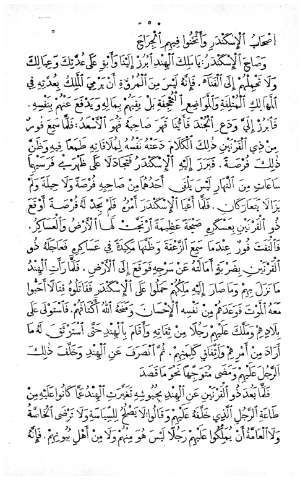 • ٥ •
اصْحَابُ الْإِسْكَنْدَرِ وَأَثْخَنُوا فِيهِمُ الْجِرَاحَ
وَصَاحَ الْإِسْكَنْدَرُ: يَا مَلِكَ الْهِنْدِ ابْرُزْ إِلَيْنَا وَأَبْقِ عَلَى عُدَّتِكَ وَعِيَالِكَ
وَلَا تَحْمِلْهُمْ إِلَى الْفَنَاءِ. فَإِنَّهُ لَيْسَ مِنَ الْمُرُوءَةِ أَنْ يَرْمِيَ الْمَلِكُ بِعُدَّتِهِ فِي
الْمَهَالِكِ الْمُتْلِفَةِ وَالْمَوَاضِعِ الْمُجْحِفَةِ بَلْ يَقِيهِمْ بِمَالِهِ وَيَدْفَعُ عَنْهُمْ بِنَفْسِهِ.
فَابْرُزْ إِلَيَّ وَدَعِ الْجُنْدَ فَأَيُّنَا قَهَرَ صَاحِبَهُ فَهُوَ الْأَسْعَدُ. فَلَمَّا سَمِعَ فُورٌ
مِنْ ذِي الْقَرْنَيْنِ ذٰلِكَ الْكَلَامَ دَعَتْهُ نَفْسُهُ لِمُلَاقَاتِهِ طَمَعًا فِيهِ وَظَنَّ
ذٰلِكَ فُرْصَةً. فَبَرَزَ إِلَيْهِ الْإِسْكَنْدَرُ فَتَجَاوَلَا عَلَى ظَهْرَيْ فَرَسَيْهِمَا
سَاعَاتٍ مِنَ النَّهَارِ لَيْسَ يَلْقَى أَحَدُهُمَا مِنْ صَاحِبِهِ فُرْصَةً وَلَا حِيلَةً وَلَمْ
يَزَالَا يَتَعَارَكَانِ. فَلَمَّا أَعْيَا الْإِسْكَنْدَرَ أَمْرُ فُورٍ وَلَمْ يَجِدْ لَهُ فُرْصَةً أَوْقَعَ
ذُو الْقَرْنَيْنِ بِعَسْكَرِهِ صَيْحَةً عَظِيمَةً ارْتَجَّتْ لَهَا الْأَرْضُ وَالْعَسَاكِرُ.
فَالْتَفَتَ فُورٌ عِنْدَمَا سَمِعَ الزَّعْقَةَ وَظَنَّهَا مَكِيدَةً فِي عَسَاكِرِهِ فَعَاجَلَهُ ذُو
الْقَرْنَيْنِ بِضَرْبَةٍ أَمَالَتْهُ عَنْ سَرْجِهِ فَوَقَعَ إِلَى الْأَرْضِ. فَلَمَّا رَأَتِ الْهِنْدُ
مَا نَزَلَ بِهِمْ وَمَا صَارَ إِلَيْهِ مَلِكُهُمْ حَمَلُوا عَلَى الْإِسْكَنْدَرِ فَقَاتَلُوهُ قِتَالًا أَحَبُّوا
مَعَهُ الْمَوْتَ فَوَعَدَهُمْ مِنْ نَفْسِهِ الْإِحْسَانَ وَمَنَحَهُ اللهُ أَكْتَافَهُمْ. فَاسْتَوْلَى عَلَى
بِلَادِهِمْ وَمَلَّكَ عَلَيْهِمْ رَجُلًا مِنْ ثِقَاتِهِ وَأَقَامَ بِالْهِنْدِ حَتَّى اسْتَوْسَقَ لَهُ مَا
أَرَادَ مِنْ أَمْرِهِمْ وَاتِّفَاقِ كَلِمَتِهِمْ. ثُمَّ انْصَرَفَ عَنِ الْهِنْدِ وَخَلَّفَ ذٰلِكَ
الرَّجُلَ عَلَيْهِمْ وَمَضَى مُتَوَجِّهًا نَحْوَ مَا قَصَدَ
فَلَمَّا بَعُدَ ذُو الْقَرْنَيْنِ عَنِ الْهِنْدِ بِجُيُوشِهِ تَغَيَّرَتِ الْهِنْدُ عَمَّا كَانُوا عَلَيْهِ مِنْ
طَاعَةِ الرَّجُلِ الَّذِي خَلَّفَهُ عَلَيْهِمْ وَقَالُوا لَا يَصْلُحُ لِلسِّيَاسَةِ وَلَا تَرْضَى الْخَاصَّةُ
وَلَا الْعَامَّةُ أَنْ يُمَلِّكُوا عَلَيْهِمْ رَجُلًا لَيْسَ هُوَ مِنْهُمْ وَلَا مِنْ أَهْلِ بُيُوتِهِمْ. فَإِنَّهُ